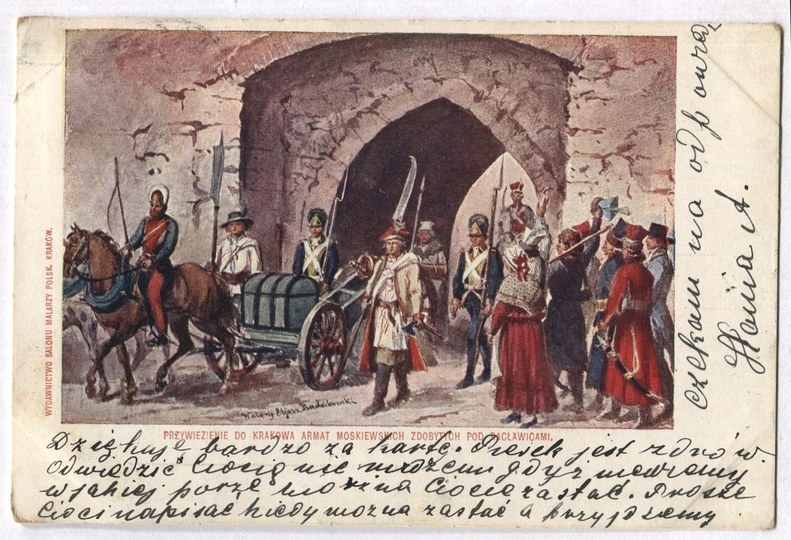 WYDAWNICTWO SALONU MALARZY POLSK. KRAKÓW.
Walery Eljasz Radzikowski
PRZYWIEZIENIE DO KRAKOWA ARMAT MOSKIEWSKICH ZDOBYTYCH POD RACŁAWICAMI.
Dziękuję bardzo za kartę. jest zdrów.
Odwiedzić Ciocię nie możemy gdyż niewiemy
w jakiej porze można Ciocię zastać. Proszę
Cioci napisać kiedy można zastać a przyjdziemy
czekam na odp
Hania A.